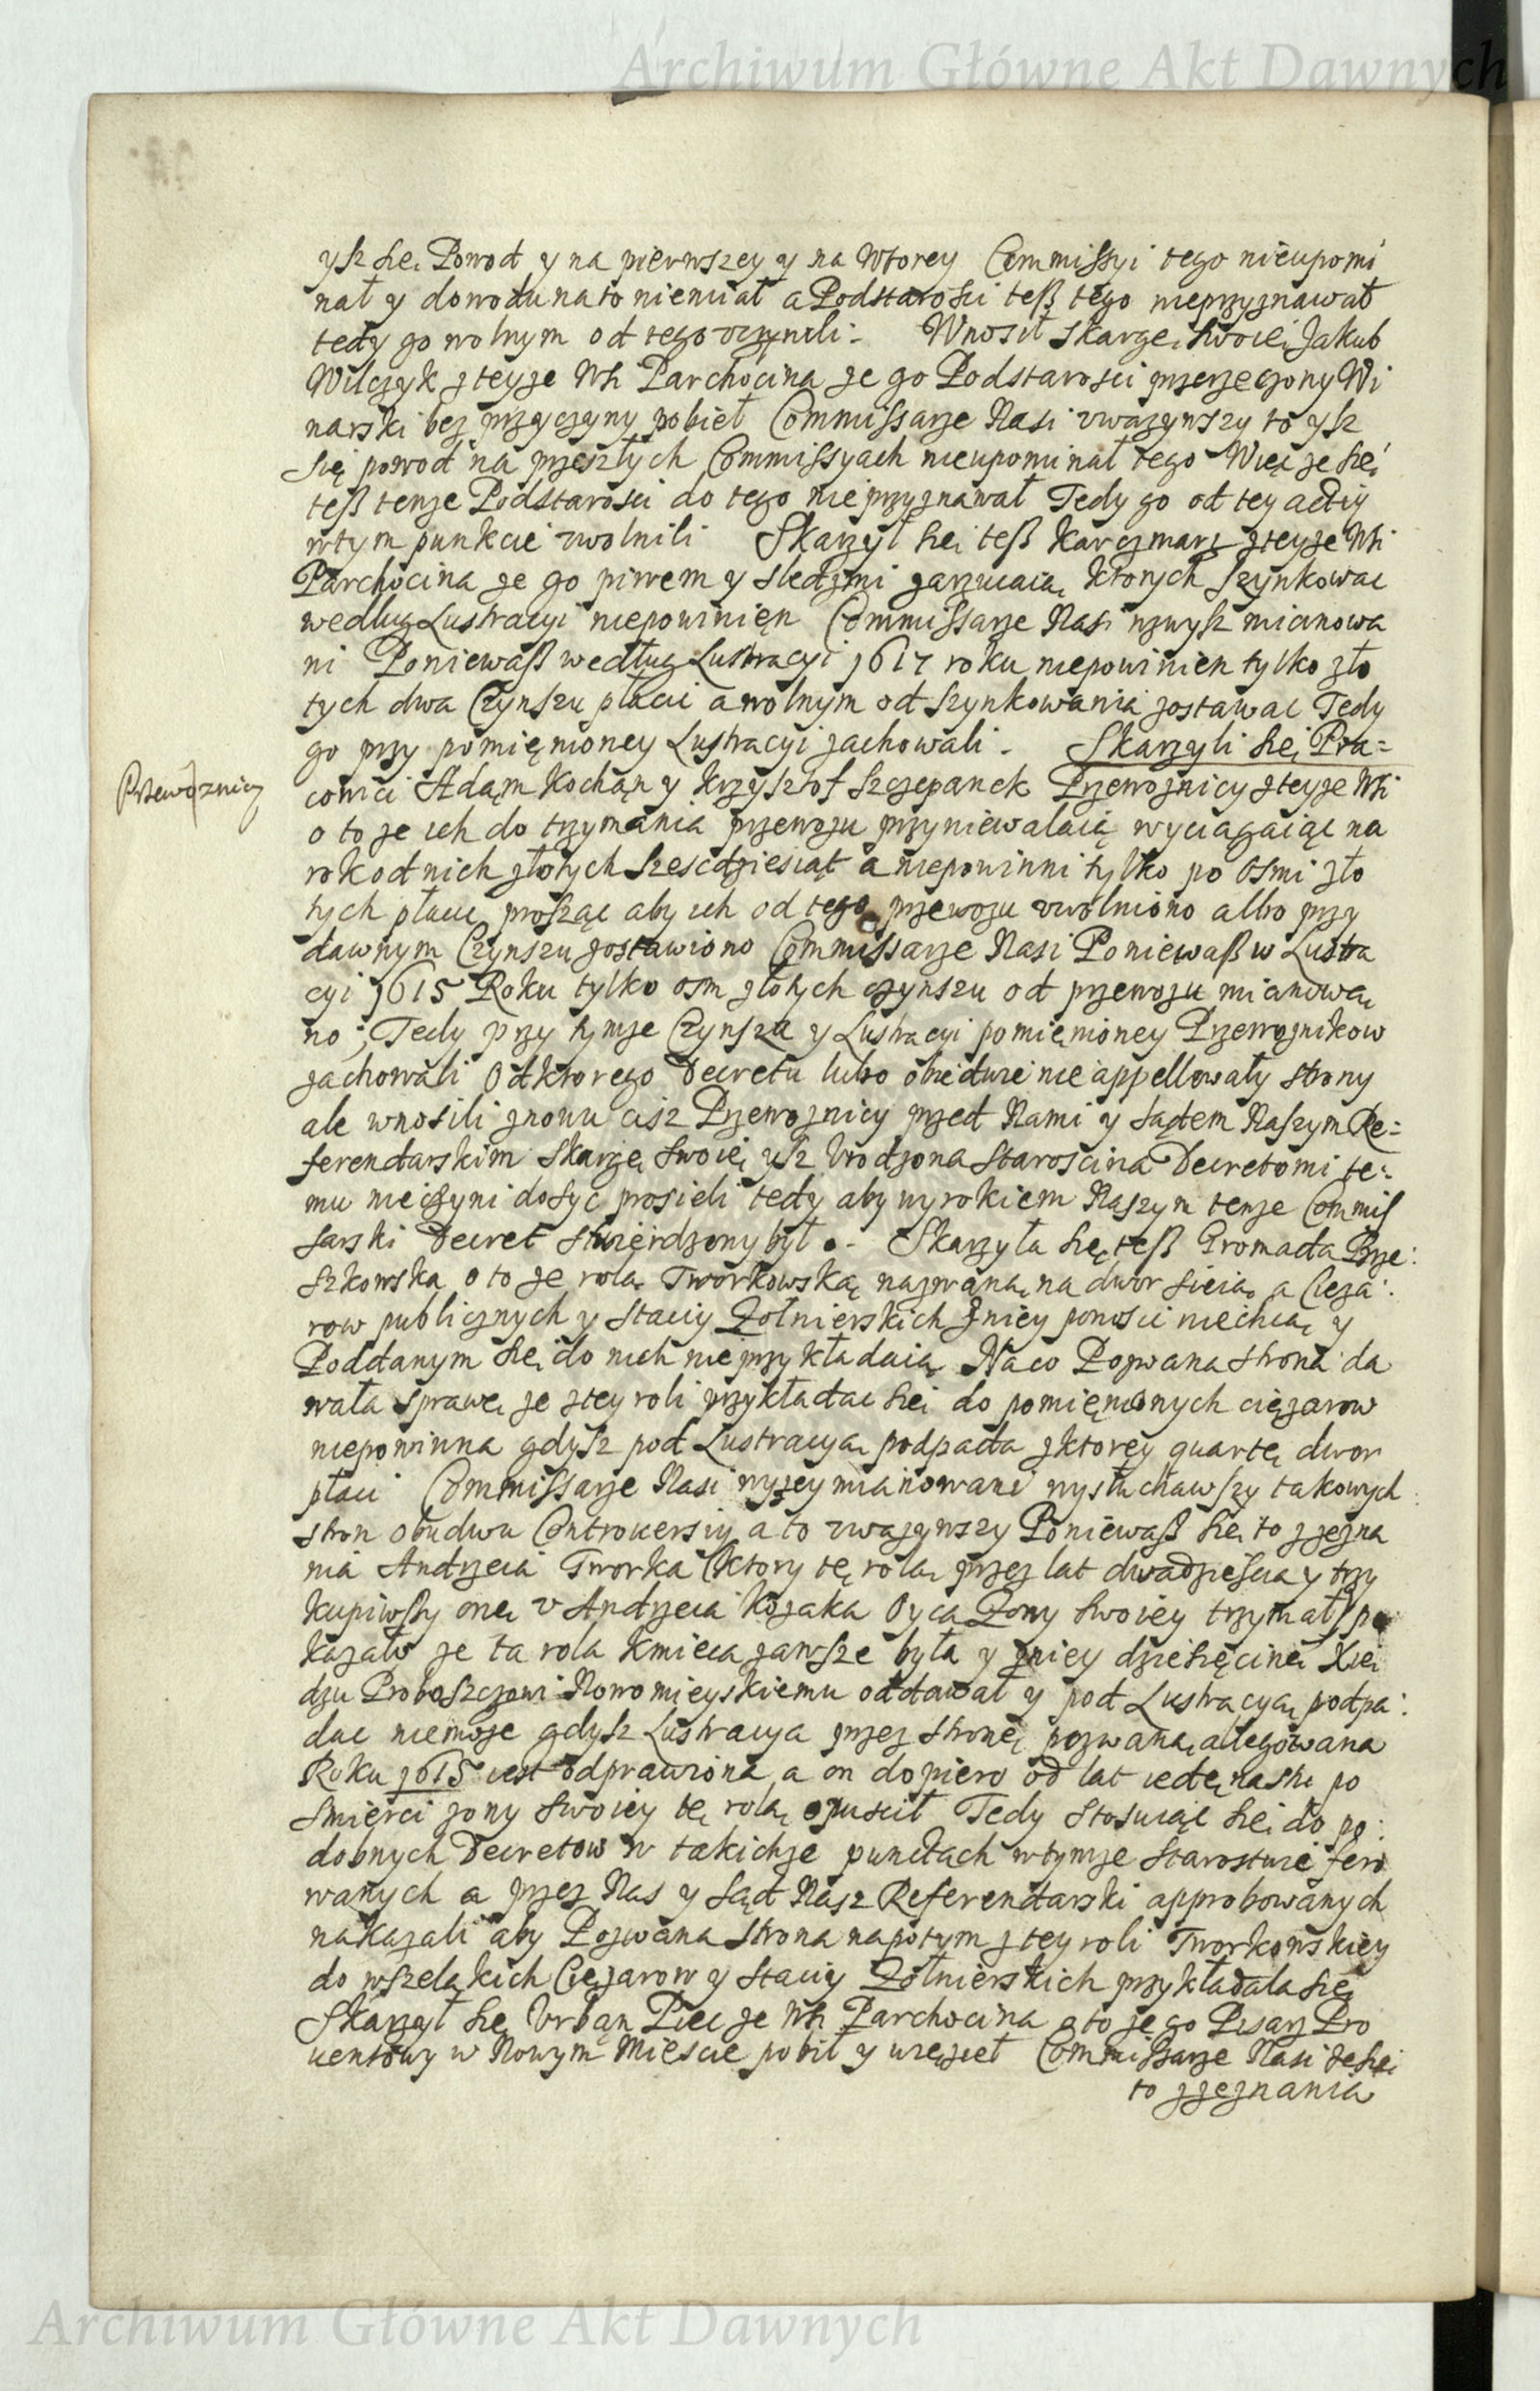 Archiwum Główne Akt Dawnych
ysz się Powod y na pierwszey y na wtorey Commissyi tego nieupomi
nał y dowodu na to niemiał a Podstarosci teß tego nieprzyznawał
tedy go wolnym od tego uczynili. Wnosił skargę swoię Jakub
Wilczyk z teyze Wsi Parchocina ze go Podstarosci przerzeczony Wi
narski bez przyczyny pobieł Commissarze Nasi uwazywszy to ysz
się powod na przeszłych Commissyach nieupominał tego Więc ze się
teß tenze Podstarosci do tego nie przyznawał Tedy go od tey actiy
w tym punkcie uwolnili Skarzył się teß karczmarz z teyze Wsi
Parchocina ze go piwem y sledzmi zarzucaią ktorych szynkowac
według Lustracyi niepowinięn Commissarze Nasi wzwysz mianowa
ni Poniewaß według Lustracyi 1617 roku niepowinien tylko zło
tych dwa Czynszu płacic a wolnym od szynkowania zostawac Tedy
go przy pomięnioney Lustracyi zachowali. Skarzyli się Pra=
Przewoznicy
cowici Adąm Kochąn y Krzysztof Szczepanek Przewoznicy z teyze Wsi
o to ze ich do trzymania przewozu przyniewalaią wyciągaiąc na
rok od nich złotych szescdziesiąt a niepowinni tylko po osmi zło
tych płacic prosząc aby ich od tego przewozu uwolniono albo przy
dawnym Czynszu zostawiono Commissarze Nasi Poniewaß w Lustra
cyi 1615 Roku tylko osm złotych czynszu od przewozu mianowa
no; Tedy przy tymze Czynszu y Lustracyi pomięnioney Przewoznikow
zachowali Od ktorego Decretu lubo obiedwie nie appellowały strony
ale wnosili znowu cisz Przewoznicy przed Nami y Sądem Naszym Re=
ferendarskim Skargę swoię ysz Urodzona Staroscina Decretowi te:
mu nieczyni dosyc prosieli tedy aby wyrokiem Naszym tenze Commis
sarski Decret stwierdzony był. Skarzyła się teß Gromada Brze:
szkowska o to ze rolą Tworkowską nazwaną na dwor sieią a Cięza:
row publicznych y staciy Zołnierskich z niey ponosic niechcą y
Poddanym się do nich nie przykładaią Na co Pozwana strona da
wała sprawę ze z tey roli przykładac się do pomięnionych ciężarow
niepowinna gdysz pod Lustracyą podpada z ktorey quartę dwor
płaci Commissarze Nasi wyzey mianowani wysłuchawszy takowych
stron obudwu Controversiy a to uwazywszy Poniewaß się to z zezna
nia Andrzeia Tworka (ktory tę rolą przez lat dwadziescia y trzy
kupiwszy onę u Andrzeia Kozaka Oyca Zony swoiey trzymał) po
kazało ze ta rola kmieca zawsze była y z niey dziesięcinę Xię
dzu Proboszczowi Nowomieyskiemu oddawał y pod Lustracyą podpa:
dac niemoze gdysz Lustracya przez stronę pozwaną allegowana
Roku 1615 iest odprawiona a on dopiero od lat iedęnastu po
smierci zony swoiey tę rolą opuscił Tedy stosuiąc się do po:
dobnych Decretow w takichze punctach w tymze Starostwie fero
wanych a przez Nas y Sąd Nasz Referendarski approbowanych
nakazali aby Pozwana strona napotym z tey roli Tworkowskiey
do wszelakich Ciężarow y staciy Zołnierskich przykładala się
Skarzył się Urbąn Piec ze Wsi Parchocina o to ze go Pisarz Pro
wentowy w Nowym Miescie pobił y więzieł Commissarze Nasi ze się
to z zeznania
Archiwum Główne Akt Dawnych